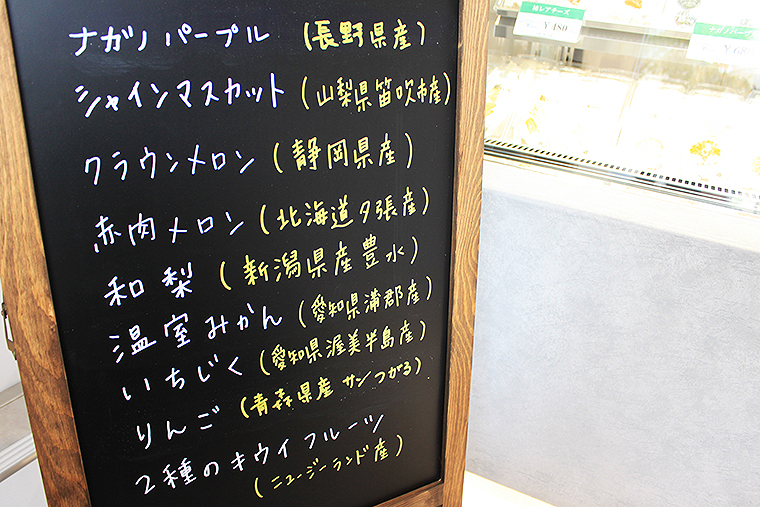 ナガノパープル (長野県産)
シャインマスカット (山梨県笛吹市産)
クラウンメロン (静岡県産)
赤肉メロン (北海道夕張産)
和梨 (新潟県産豊水)
温室みかん (愛知県蒲郡産)
いちじく (愛知県渥美半島産)
りんご (青森県産 サンつがる)
2種のキウイフルーツ
(ニュージーランド産)
¥480
ナガノパープル